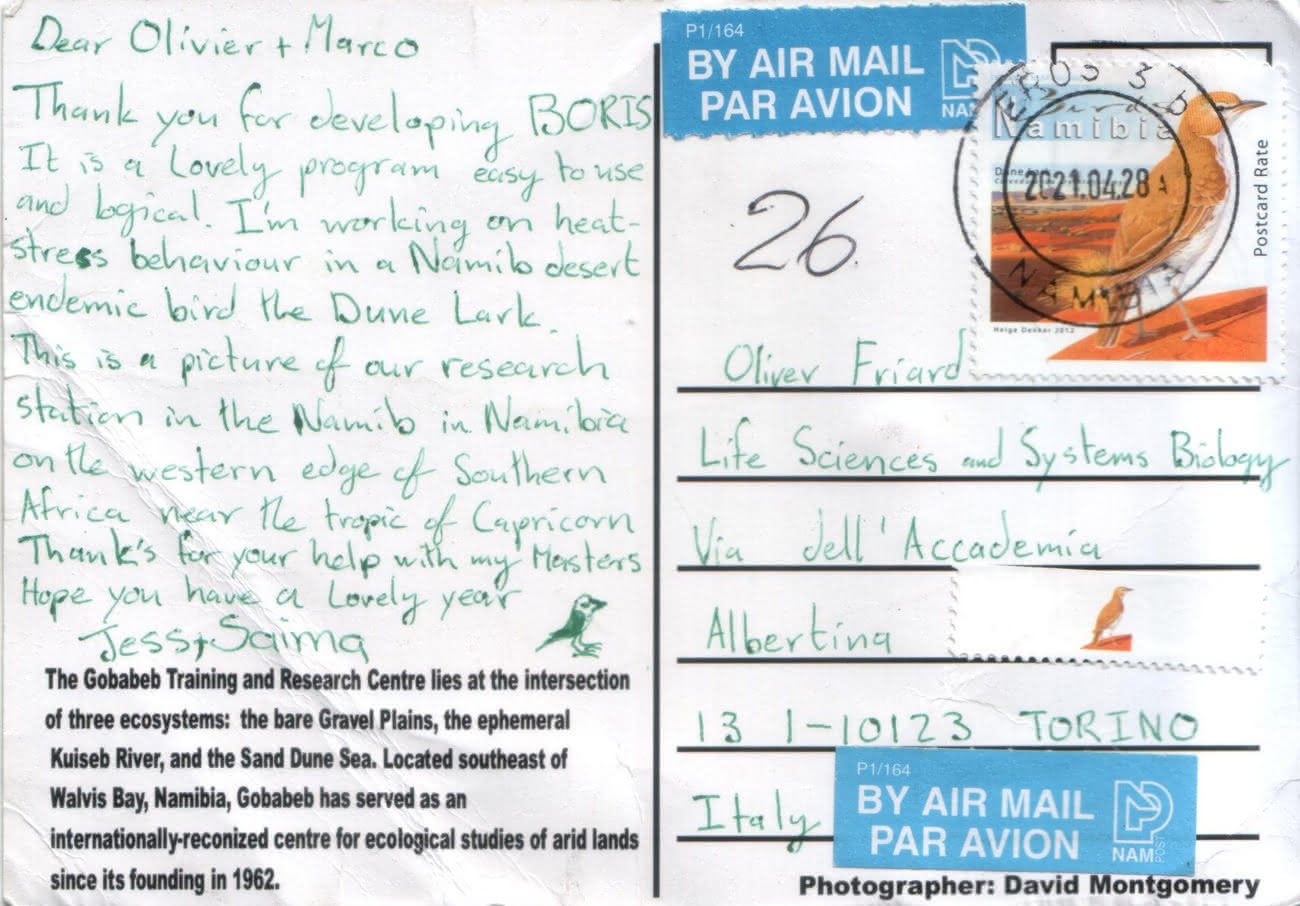 Dear Olivier + Marco
Thank you for developing BORIS
It is a lovely program easy to use
and logical. I'm working on heat-
stress behaviour in a Namib desert
endemic bird the Dune Lark.
This is a picture of our research
station in the Namib in Namibia
on the western edge of Southern
Africa near the tropic of Capricorn
Thank's for your help with my Masters
Hope you have a lovely year
Jess + Saima
The Gobabeb Training and Research Centre lies at the intersection
of three ecosystems: the bare Gravel Plains, the ephemeral
Kuiseb River, and the Sand Dune Sea. Located southeast of
Walvis Bay, Namibia, Gobabeb has served as an
internationally-reconized centre for ecological studies of arid lands
since its founding in 1962.
P1/164
BY AIR MAIL
PAR AVION
NAM
EROS 3 b
Namibia
2021.04.28
NAMIBIA
Postcard Rate
Helge Denker 2012
26.
Oliver Friard
Life Sciences and Systems Biology
Via dell'Accademia
Albertina
13 1-10123 TORINO
Italy
P1/164
BY AIR MAIL
PAR AVION
NAMPOST
Photographer: David Montgomery